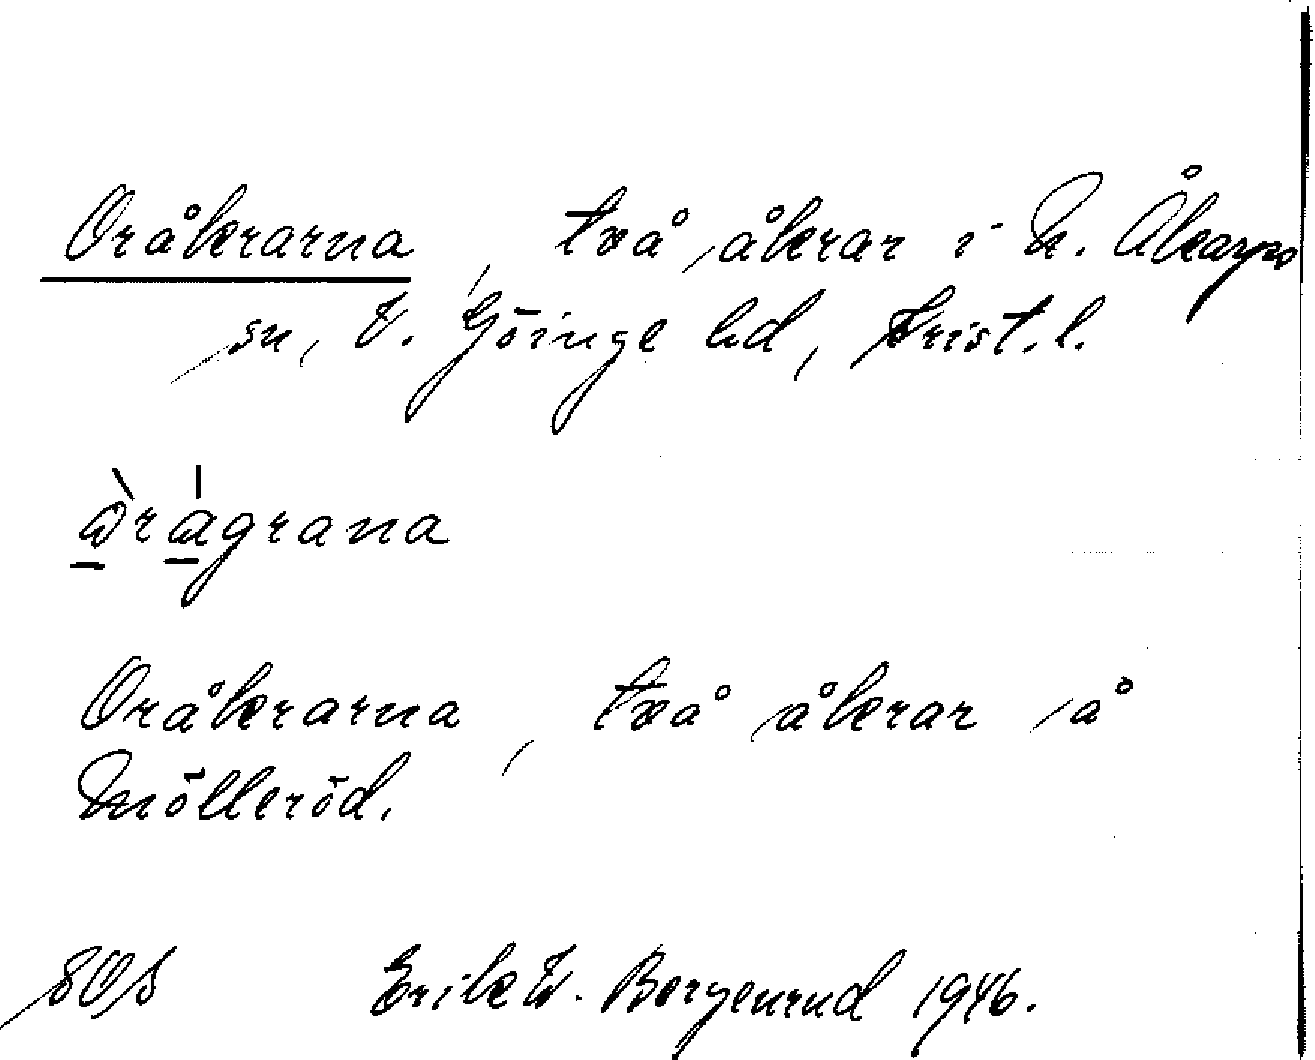 Oråkrarna, två åkrar i N. Åkarps
sn, V. Göinge hd, Krist. l.
ɷ̀rɷ́grana
Oråkrarna, två åkrar å
Mölleröd.
SOS Erik W. Bergenrud 1946.